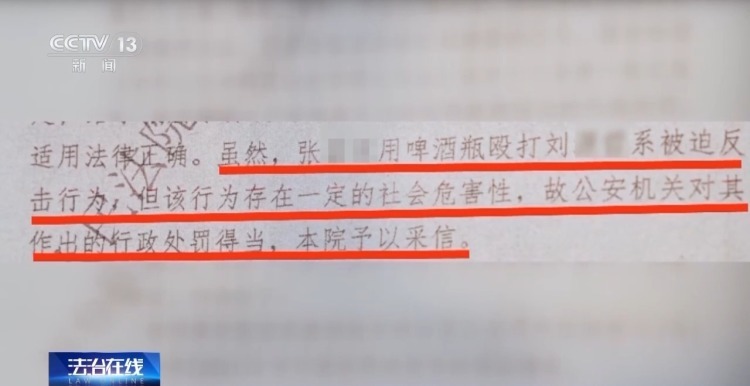 CCTV 13
新闻
适用法律正确。虽然,张 用啤酒瓶殴打刘 系被迫反
击行为,但该行为存在一定的社会危害性,故公安机关对其
作出的行政处罚得当,本院予以采信。
法治在线
LAW ONLINE